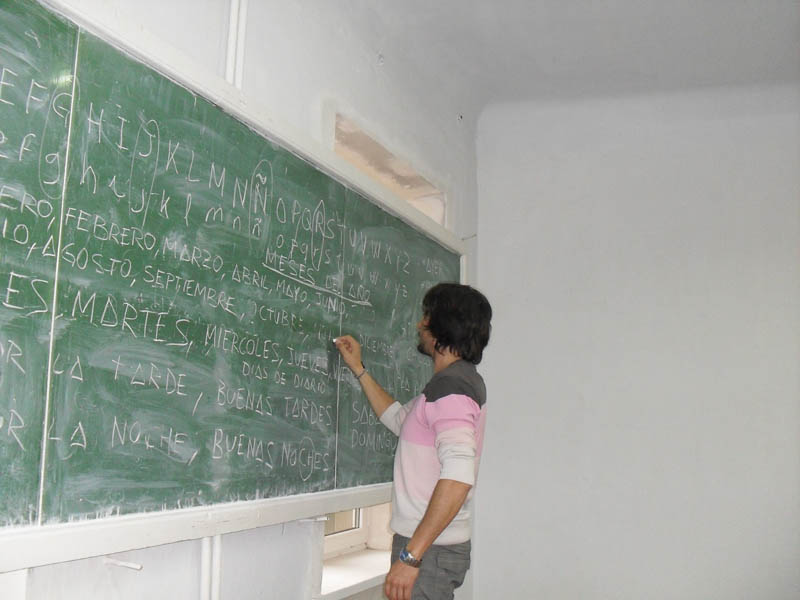 EFGHIJKLMNÑOPQRSTUVWXYZ
efghijklmnñopqrstuvwxyz
MESES DEL AÑO
ERO, FEBRERO, MARZO, ABRIL, MAYO, JUNIO,
IO, AGOSTO, SEPTIEMBRE, OCTUBRE, DICIEMBRE
ES, MARTES, MIERCOLES, JUEVES
DIAS DE DIARIO
OR LA TARDE, BUENAS TARDES SABA
OR LA NOCHE, BUENAS NOCHES DOMINGO